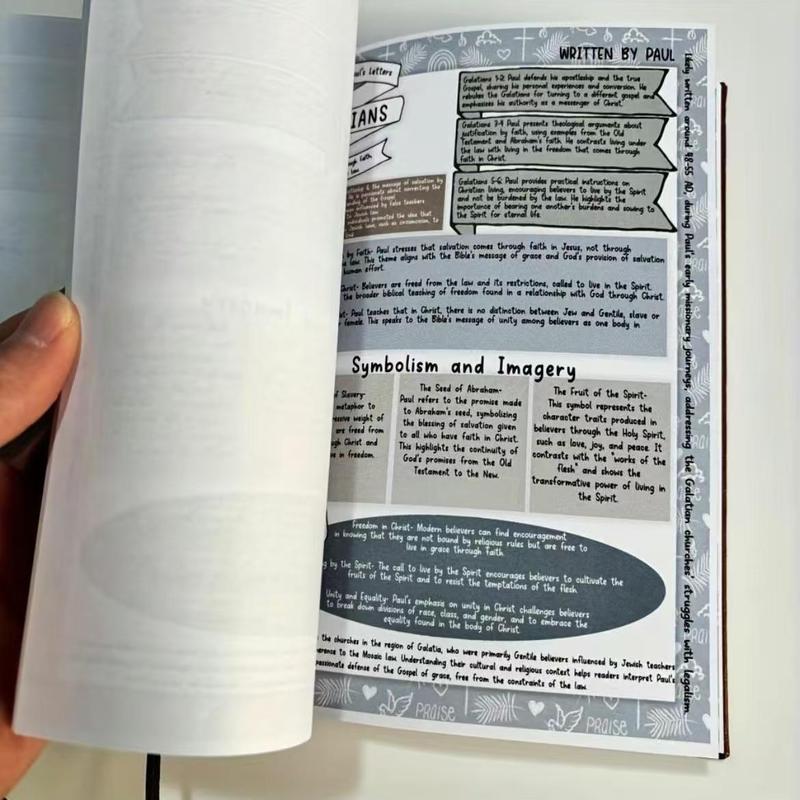 WRITTEN BY PAUL
Paul's Letters
IANS
through faith
law
Galatians 1-2: Paul defends his apostleship and the true
Gospel, sharing his personal experiences and conversion. He
rebukes the Galatians for turning to a different gospel and
emphasizes his authority as a messenger of Christ.
Galatians 3-4: Paul presents theological arguments about
justification by faith, using examples from the Old
Testament and Abraham's faith. He contrasts living under
the law with living in the freedom that comes through
faith in Christ.
Galatians 5-6: Paul provides practical instructions on
Christian living, encouraging believers to live by the Spirit
and not be burdened by the law. He highlights the
importance of bearing one another's burdens and sowing to
the Spirit for eternal life.
& the message of salvation by
is passionate about correcting the
standing of the Gospel
been influenced by false teachers
to Jewish law.
individuals promoted the idea that
Jewish law, such as circumcision, to
by Faith- Paul stresses that salvation comes through faith in Jesus, not through
law. This theme aligns with the Bible's message of grace and God's provision of salvation
human effort.
Christ- Believers are freed from the law and its restrictions, called to live in the Spirit.
the broader biblical teaching of freedom found in a relationship with God through Christ.
Paul teaches that in Christ, there is no distinction between Jew and Gentile, slave or
female. This speaks to the Bible's message of unity among believers as one body in
Symbolism and Imagery
of Slavery-
metaphor to
weight of
are freed from
Christ and
in freedom.
The Seed of Abraham-
Paul refers to the promise made
to Abraham's seed, symbolizing
the blessing of salvation given
to all who have faith in Christ.
This highlights the continuity of
God's promises from the Old
Testament to the New.
The Fruit of the Spirit-
This symbol represents the
character traits produced in
believers through the Holy Spirit,
such as love, joy, and peace. It
contrasts with the "works of the
flesh" and shows the
transformative power of living in
the Spirit.
Freedom in Christ- Modern believers can find encouragement
in knowing that they are not bound by religious rules but are free to
live in grace through faith.
by the Spirit- The call to live by the Spirit encourages believers to cultivate the
fruits of the Spirit and to resist the temptations of the flesh.
Unity and Equality- Paul's emphasis on unity in Christ challenges believers
to break down divisions of race, class, and gender, and to embrace the
equality found in the body of Christ.
the churches in the region of Galatia, who were primarily Gentile believers influenced by Jewish teachers
to the Mosaic law. Understanding their cultural and religious context helps readers interpret Paul's
passionate defense of the Gospel of grace, free from the constraints of the law.
likely written around 48-55 AD, during Paul's early missionary journeys, addressing the Galatian churches' struggles with legalism
PRAISE
PRAISE